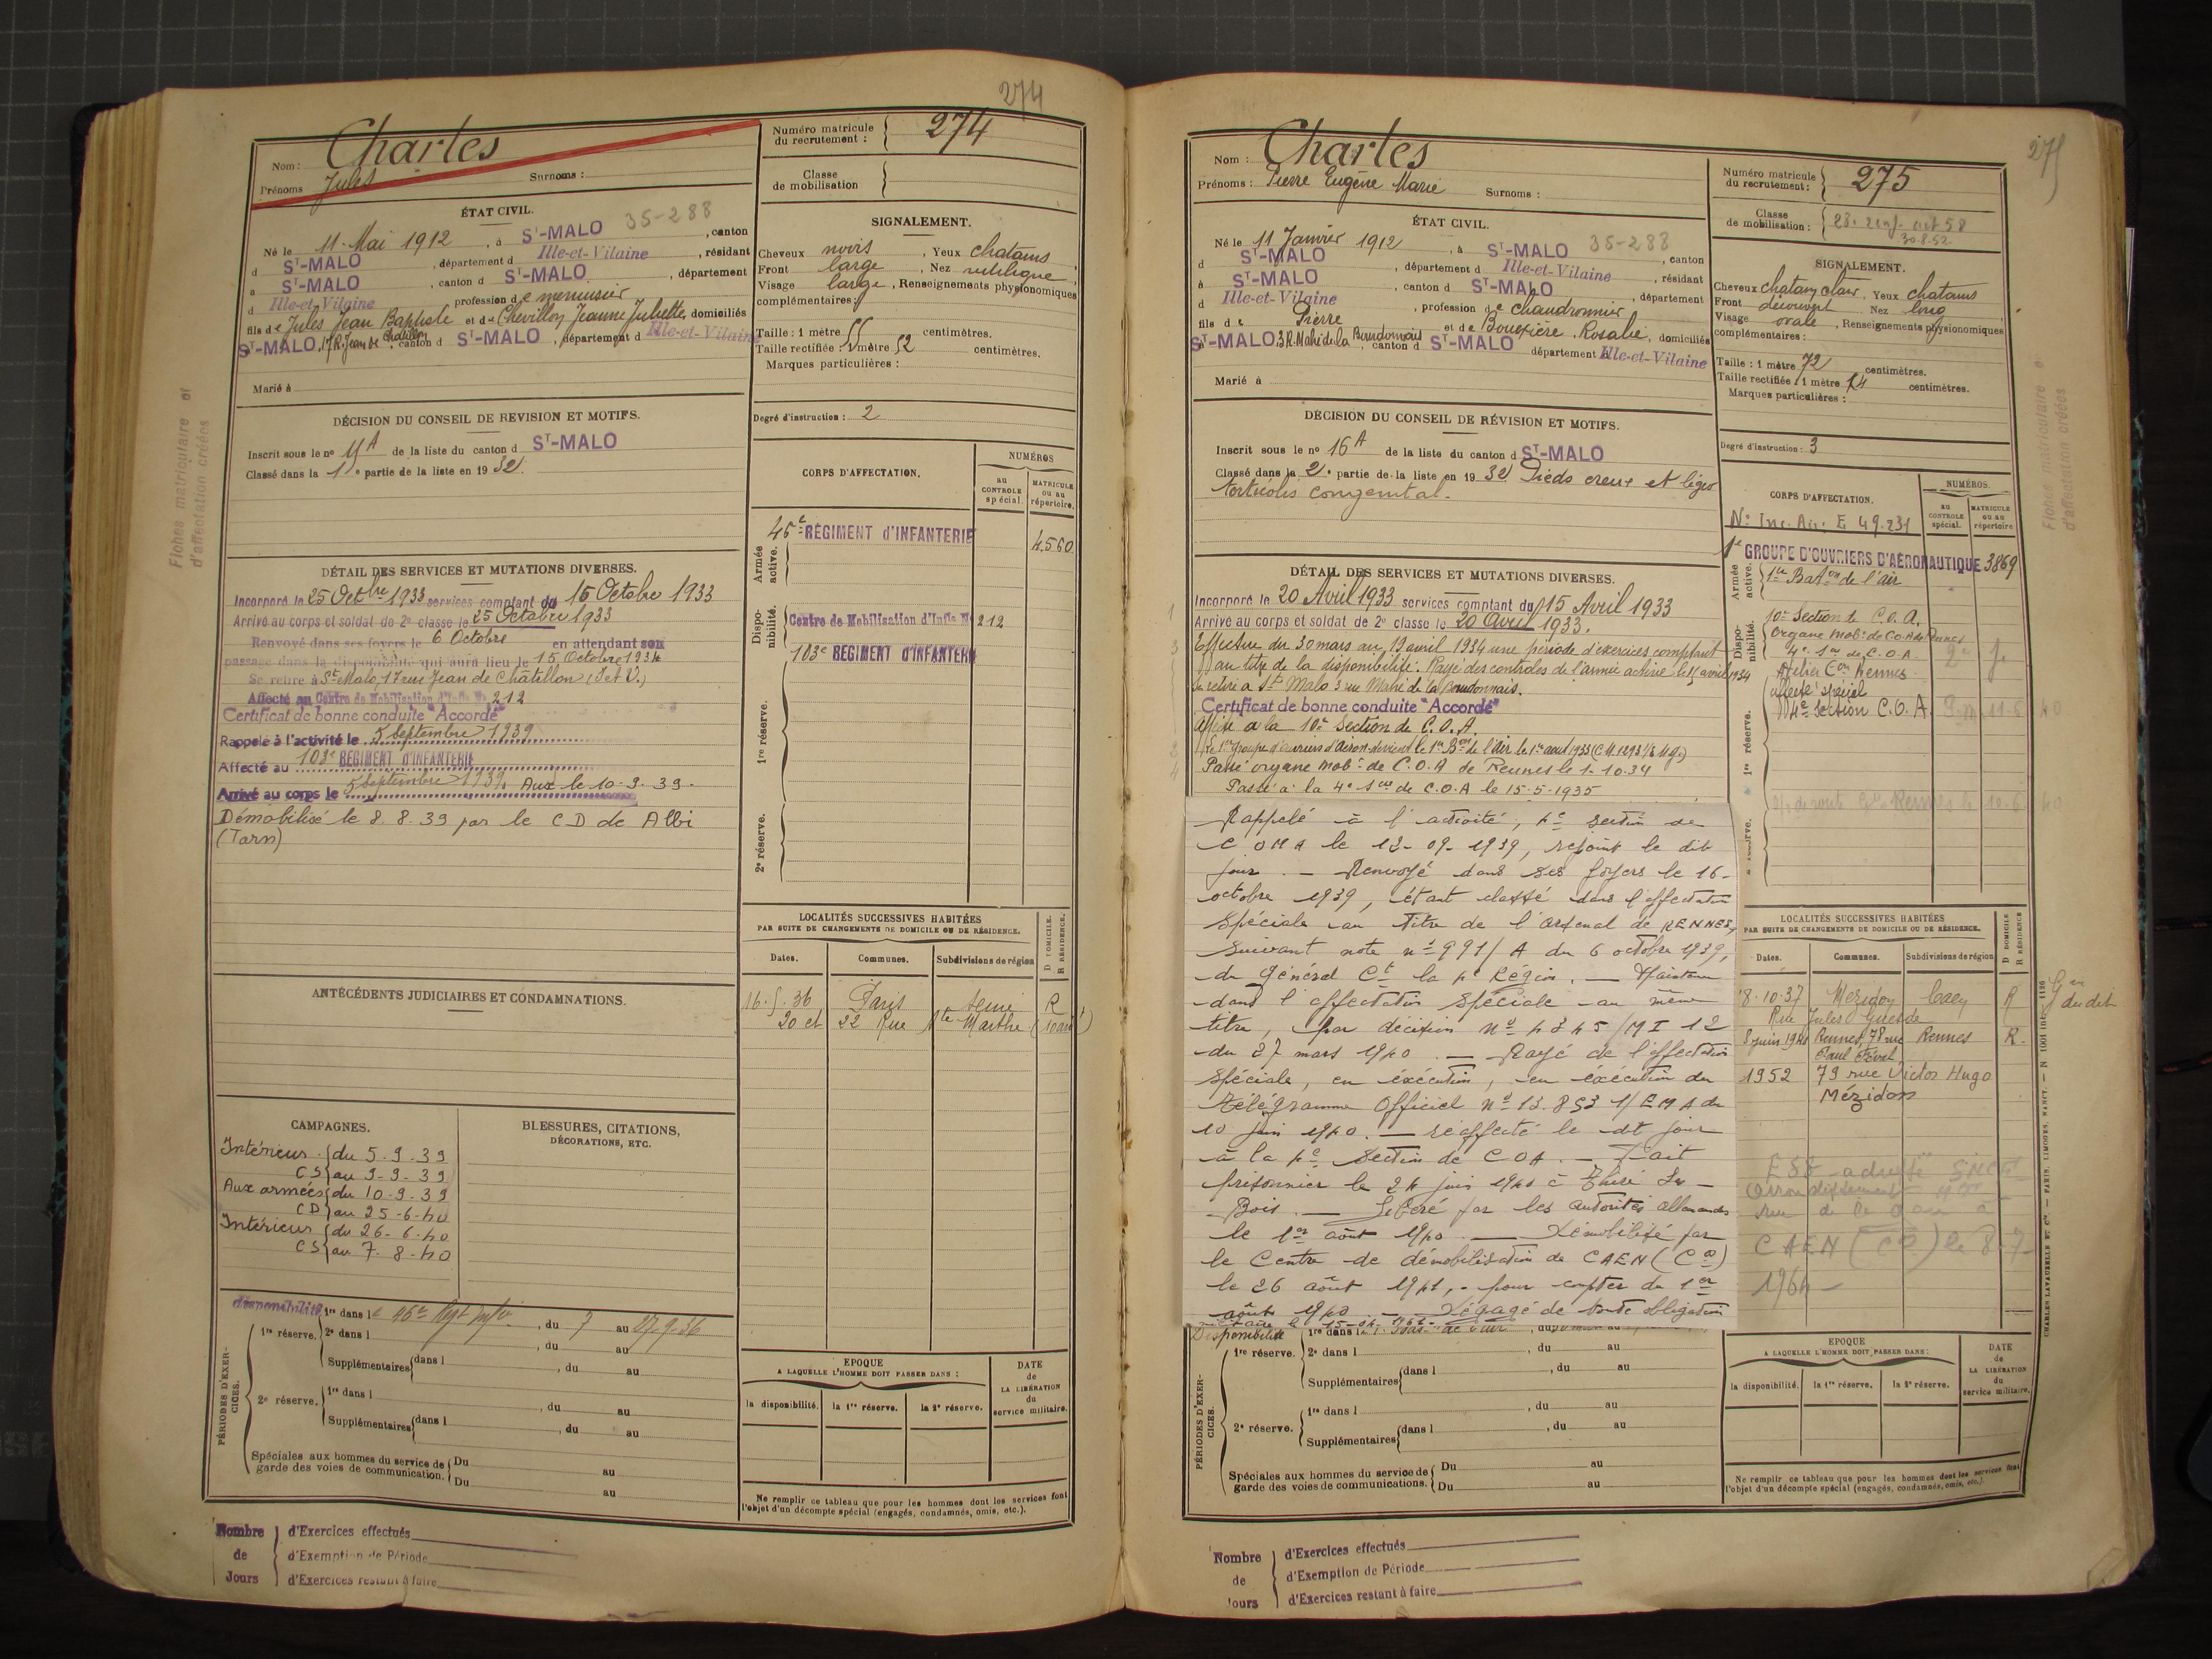 274
Nom : Charles
Prénoms Jules Surnoms :
Numéro matricule du recrutement : 274
Classe de mobilisation
ÉTAT CIVIL.
35-288
Né le 11 Mai 1912, à ST-MALO, canton
d ST-MALO, département d Ille-et-Vilaine, résidant
à ST-MALO, canton d ST-MALO, département
d Ille-et-Vilaine, profession de menuisier
fils de Jules Jean Baptiste et de Chevillon Jeanne Juliette, domiciliés
ST-MALO, 17 R. Jean de Chatillon, canton d ST-MALO, département d Ille-et-Vilaine
Marié à
SIGNALEMENT.
Cheveux noirs, Yeux chatains
Front large, Nez rectiligne
Visage large, Renseignements physionomiques
complémentaires :
Taille : 1 mètre centimètres.
Taille rectifiée : 1 mètre 52 centimètres.
Marques particulières :
Degré d'instruction : 2
DÉCISION DU CONSEIL DE REVISION ET MOTIFS.
Inscrit sous le no A de la liste du canton d ST-MALO
Classé dans la 1re partie de la liste en 1932.
CORPS D'AFFECTATION.
NUMÉROS
au CONTROLE spécial.
MATRICULE ou au répertoire.
Armée active.
46e RÉGIMENT d'INFANTERIE 4560
Disponibilité.
Centre de Mobilisation d'Infie No 212
103e REGIMENT d'INFANTERIE
1re réserve.
2e réserve.
DÉTAIL DES SERVICES ET MUTATIONS DIVERSES.
Incorporé le 25 Octbre 1933 services comptant du 15 Octobre 1933
Arrivé au corps et soldat de 2e classe le 25 Octobre 1933
Renvoyé dans ses foyers le 6 Octobre en attendant son
passage dans la disponibilité qui aura lieu le 15 Octobre 1934
Se retire à St Malo, 17 rue Jean de Châtillon (I et V.)
Affecté au Centre de Mobilisation d'Infie No 212
Certificat de bonne conduite "Accordé"
Rappelé à l'activité le 5 Septembre 1939
Affecté au 103e REGIMENT d'INFANTERIE
Arrivé au corps le 5 Septembre 1939. Aux le 10-9-39.
Démobilisé le 8.8.39 par le CD de Albi
(Tarn)
LOCALITÉS SUCCESSIVES HABITÉES
PAR SUITE DE CHANGEMENTS DE DOMICILE OU DE RÉSIDENCE.
D DOMICILE. R RÉSIDENCE.
Dates. Communes. Subdivisions de région
16.5.36 Paris Seine R
20 et 22 Rue Ste Marthe
ANTÉCÉDENTS JUDICIAIRES ET CONDAMNATIONS.
CAMPAGNES.
Intérieur du 5-9-39
CS au 9-9-39
Aux armées du 10-9-39
CD au 25-6-40
Intérieur du 26-6-40
CS au 7-8-40
BLESSURES, CITATIONS,
DÉCORATIONS, ETC.
PÉRIODES D'EXERCICES.
disponibilité
1re réserve. 1re dans le 46e Regt Infie, du 7 au 27-9-36
2e dans l , du au
Supplémentaires dans l , du au
2e réserve. 1re dans l , du au
Supplémentaires dans l , du au
Spéciales aux hommes du service de garde des voies de communication. Du au
Du au
EPOQUE
A LAQUELLE L'HOMME DOIT PASSER DANS :
la disponibilité. la 1re réserve. la 2e réserve.
DATE de LA LIBÉRATION du service militaire.
Ne remplir ce tableau que pour les hommes dont les services font
l'objet d'un décompte spécial (engagés, condamnés, omis, etc.).
Nombre de Jours
d'Exercices effectués
d'Exemption de Période
d'Exercices restant à faire
Fiches matriculaire et
d'affectation créées
275
Nom : Charles
Prénoms : Pierre Eugène Marie Surnoms :
Numéro matricule du recrutement : 275
Classe de mobilisation :
30.8.52
ÉTAT CIVIL.
35-288
Né le 11 Janvier 1912, à ST-MALO, canton
d ST-MALO, département d Ille-et-Vilaine, résidant
à ST-MALO, canton d ST-MALO, département
d Ille-et-Vilaine, profession de chaudronnier
fils de Pierre et de Bouexière Rosalie, domiciliés
ST-MALO, 3 R. Mahé de la Bourdonnais, canton d ST-MALO département d Ille-et-Vilaine
Marié à
SIGNALEMENT.
Cheveux chatain clair, Yeux chatains
Front découvert Nez long
Visage ovale, Renseignements physionomiques
complémentaires :
Taille : 1 mètre 72 centimètres.
Taille rectifiée : 1 mètre 74 centimètres.
Marques particulières :
Degré d'instruction : 3
DÉCISION DU CONSEIL DE RÉVISION ET MOTIFS.
Inscrit sous le no 16 A de la liste du canton d ST-MALO
Classé dans la 2e partie de la liste en 1932 Pieds creux et léger
torticolis congenital.
CORPS D'AFFECTATION.
NUMÉROS.
au CONTROLE spécial.
MATRICULE ou au répertoire
No Inc. Air. E 49.231
Armée active.
1er GROUPE D'OUVRIERS D'AÉRONAUTIQUE 3869
1er Baton de l'air
Disponibilité.
10e Section de C.O.A.
Organe mobr de C.O.A de Rennes
4e Son de C.O.A.
Atelier Con Rennes
affecté spécial
4e Section C.O.A. 11-6 40
1re réserve.
Rennes le 10-6 40
DÉTAIL DES SERVICES ET MUTATIONS DIVERSES.
Incorporé le 20 Avril 1933 services comptant du 15 Avril 1933
Arrivé au corps et soldat de 2e classe le 20 Avril 1933.
Effectue du 30 mars au 19 avril 1934 une période d'exercices comptant
au titre de la disponibilité. Rayé des controles de l'armée active le 15 avril 1934
Se retire à St Malo 3 rue Mahé de la Bourdonnais.
Certificat de bonne conduite "Accordé"
Affecté à la 10e Section de C.O.A.
Le 1er groupe d'ouvriers d'aéron. devient le 1er Bon de l'air le 1er aout 1933
Passé organe mobr de C.O.A de Rennes le 1-10-34
Passé à la 4e Son de C.O.A le 15-5-1935
Rappelé à l'activité, 4e section de
C O M A le 12-09-1939, rejoint le dit
jour. — Renvoyé dans ses foyers le 16-
octobre 1939, étant classé dans l'affectation
spéciale au titre de l'Arsenal de RENNES,
suivant note no 991/A du 6 octobre 1939,
du Général Ct la 4e Région. — Maintenu
dans l'affectation spéciale au même
titre, par décision no 4345/MI 12
du 27 mars 1940. — Rayé de l'affectation
spéciale, en éxécution, en éxécution du
télégramme Officiel no 13.853 1/EMA du
10 juin 1940. — réaffecté le dit jour
à la 4e section de COA. — Fait
prisonnier le 24 juin 1940 à
Bois. — Libéré par les autorités allemandes
le 1er août 1940. — Démobilisé par
le Centre de démobilisation de CAEN (Cos)
le 26 août 1941, - pour compter du 1er
août 1940. — Dégagé de toute obligation
militaire le 15-04-1962-
LOCALITÉS SUCCESSIVES HABITÉES
PAR SUITE DE CHANGEMENTS DE DOMICILE OU DE RÉSIDENCE.
D DOMICILE R RÉSIDENCE
Dates. Communes. Subdivisions de région
8-10-37 Mézidon Caen R
Rue Jules Guesde
Gen du dit
8 juin 1940 Rennes, 78 rue Rennes R.
Paul Féval
1952 79 rue Victor Hugo
Mézidon
adressé SNCF
arrondissement
rue de la
CAEN (Cos) le 8-7-
1964 -
PÉRIODES D'EXERCICES.
Disponibilité
1re réserve. 1re dans l
2e dans l , du au
Supplémentaires dans l , du au
2e réserve. 1re dans l , du au
Supplémentaires dans l , du au
Spéciales aux hommes du service de garde des voies de communications. Du au
Du au
EPOQUE
A LAQUELLE L'HOMME DOIT PASSER DANS :
la disponibilité. la 1re réserve. la 2e réserve.
DATE de LA LIBÉRATION du service militaire.
Ne remplir ce tableau que pour les hommes dont les services font
l'objet d'un décompte spécial (engagés, condamnés, omis, etc.).
Nombre de Jours
d'Exercices effectués
d'Exemption de Période
d'Exercices restant à faire
Fiches matriculaire et
d'affectation créées
CHARLES LAVAUZELLE ET Cie. — PARIS, LIMOGES, NANCY. — N° 1001 int.